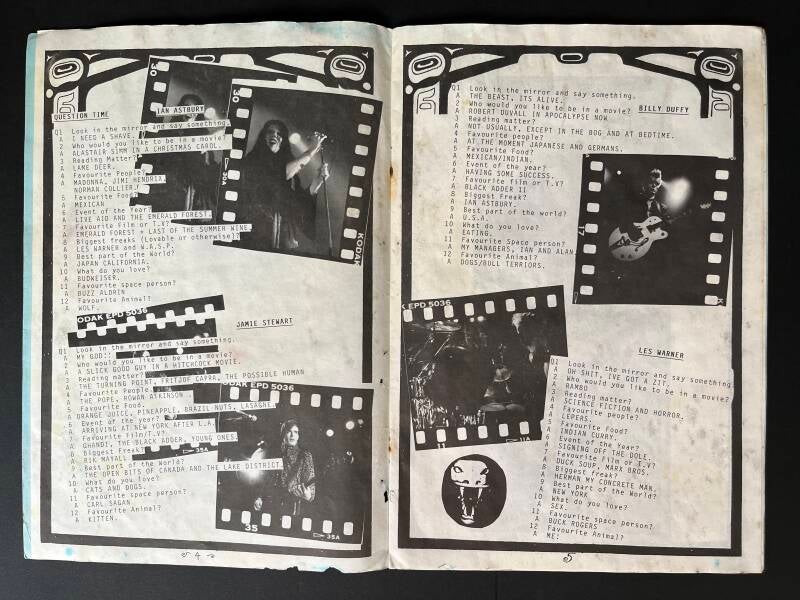 QUESTION TIME
IAN ASTBURY
Q1 Look in the mirror and say something.
A I NEED A SHAVE.
2 Who would you like to be in a movie?
A ALASTAIR SIMM IN A CHRISTMAS CAROL.
3 Reading Matter?
A LAME DEER.
4 Favourite People?
A MADONNA, JIMI HENDRIX,
NORMAN COLLIER.
5 Favourite Food?
A MEXICAN
6 Event of the Year?
A LIVE AID AND THE EMERALD FOREST.
7 Favourite Film or T.V?
A EMERALD FOREST + LAST OF THE SUMMER WINE.
8 Biggest freaks (Lovable or otherwise)?
A LES WARNER and W.A.S.P.
9 Best part of the World?
A JAPAN CALIFORNIA.
10 What do you love?
A BUDWEISER.
11 Favourite space person?
A BUZZ ALDRIN
12 Favourite Animal?
A WOLF.
KODAK
ODAK EPD 5036
JAMIE STEWART
Q1 Look in the mirror and say something.
A MY GOD!!
2 Who would you like to be in a movie?
A A SLICK GOOD GUY IN A HITCHCOCK MOVIE.
3 Reading matter?
A THE TURNING POINT, FRITJOF CAPRA, THE POSSIBLE HUMAN
4 Favourite People.
A THE POPE, ROWAN ATKINSON
5 Favourite Food.
A ORANGE JUICE, PINEAPPLE, BRAZIL NUTS, LASAGNE.
6 Event of the year?
A ARRIVING AT NEW YORK AFTER L.A.
7 Favourite Film/T.V?
A GHANDI, THE BLACK ADDER, YOUNG ONES.
8 Biggest Freak?
A RIK MAYALL
9 Best part of the World?
A THE OPEN BITS OF CANADA AND THE LAKE DISTRICT.
10 What do you love?
A CATS AND DOGS.
11 Favourite space person?
A CARL SAGAN.
12 Favourite Animal?
A KITTEN.
DAK EPD 5036
35A
35
35A
4
BILLY DUFFY
Q1 Look in the mirror and say something.
A THE BEAST, ITS ALIVE.
2 Who would you like to be in a movie?
A ROBERT DUVALL IN APOCALYPSE NOW
3 Reading matter?
A NOT USUALLY, EXCEPT IN THE BOG AND AT BEDTIME.
4 Favourite people?
A AT THE MOMENT JAPANESE AND GERMANS.
5 Favourite Food?
A MEXICAN/INDIAN.
6 Event of the year?
A HAVING SOME SUCCESS.
7 Favourite film or T.V?
A BLACK ADDER II
8 Biggest Freak?
A IAN ASTBURY.
9 Best part of the world?
A U.S.A.
10 What do you love?
A EATING.
11 Favourite Space person?
A MY MANAGERS, IAN AND ALAN.
12 Favourite Animal?
A DOGS/BULL TERRIORS.
17
K EPD 5036
11A
LES WARNER
Q1 Look in the mirror and say something.
A OH SHIT, IVE GOT A ZIT.
2 Who would you like to be in a movie?
A RAMBO
3 Reading matter?
A SCIENCE FICTION AND HORROR.
4 Favourite people?
A LEPERS.
5 Favourite Food?
A INDIAN CURRY.
6 Event of the Year?
A SIGNING OFF THE DOLE.
7 Favourite Film or T.V?
A DUCK SOUP, MARX BROS.
8 Biggest freak?
A HERMAN MY CONCRETE MAN.
9 Best part of the World?
A NEW YORK
10 What do you love?
A SEX.
11 Favourite space person?
A BUCK ROGERS
12 Favourite Animal?
A ME!
5